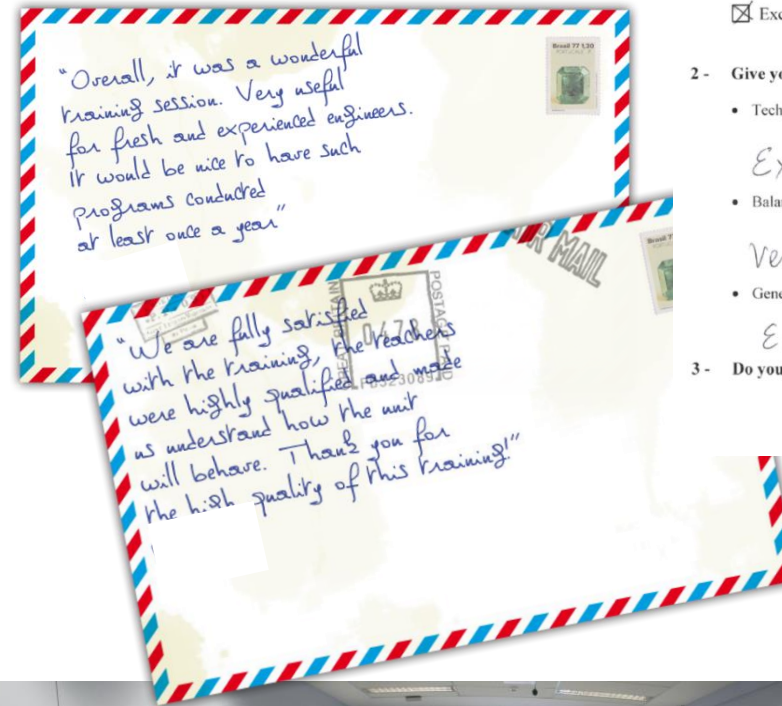 "Overall, it was a wonderful
training session. Very useful
for fresh and experienced engineers.
It would be nice to have such
programs conducted
at least once a year"
Brasil 77 1,30
AIR MAIL
"We are fully satisfied
with the training, the teachers
were highly qualified and made
us understand how the unit
will behave. Thank you for
the high quality of this training!"
GREAT BRITAIN
POSTAGE PAID
Brasil 77
2 - Give yo
• Tech
• Bala
• Gene
3 - Do you